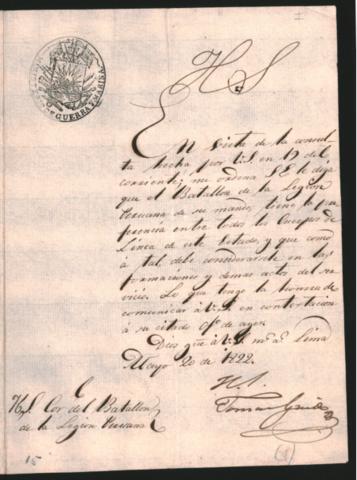 I
GUERRA Y MARINA
H S
En vista de la consul-
ta hecha por V.S. en 19 del
corriente; me ordena S.E. le diga
que el Batallon de la Legion
Peruana de su mando, tiene la pre-
ferencia entre todos los Cuerpos de
Linea de este Estado, y que como
a tal debe considerarse en las
formaciones y demas actos del ser-
vicio. Lo que tengo la honra de
comunicar à V.S. en contestacion
à su citado of.º de ayer.
Dios gue à V.S. m.s a.s Lima
Mayo 20 de 1822.
H. S.
Tomas Guido
H. S. Cor. del Batallon
de la Legion Peruana
15